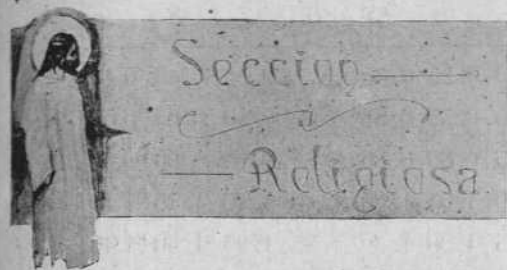 Seccion
Religiosa.